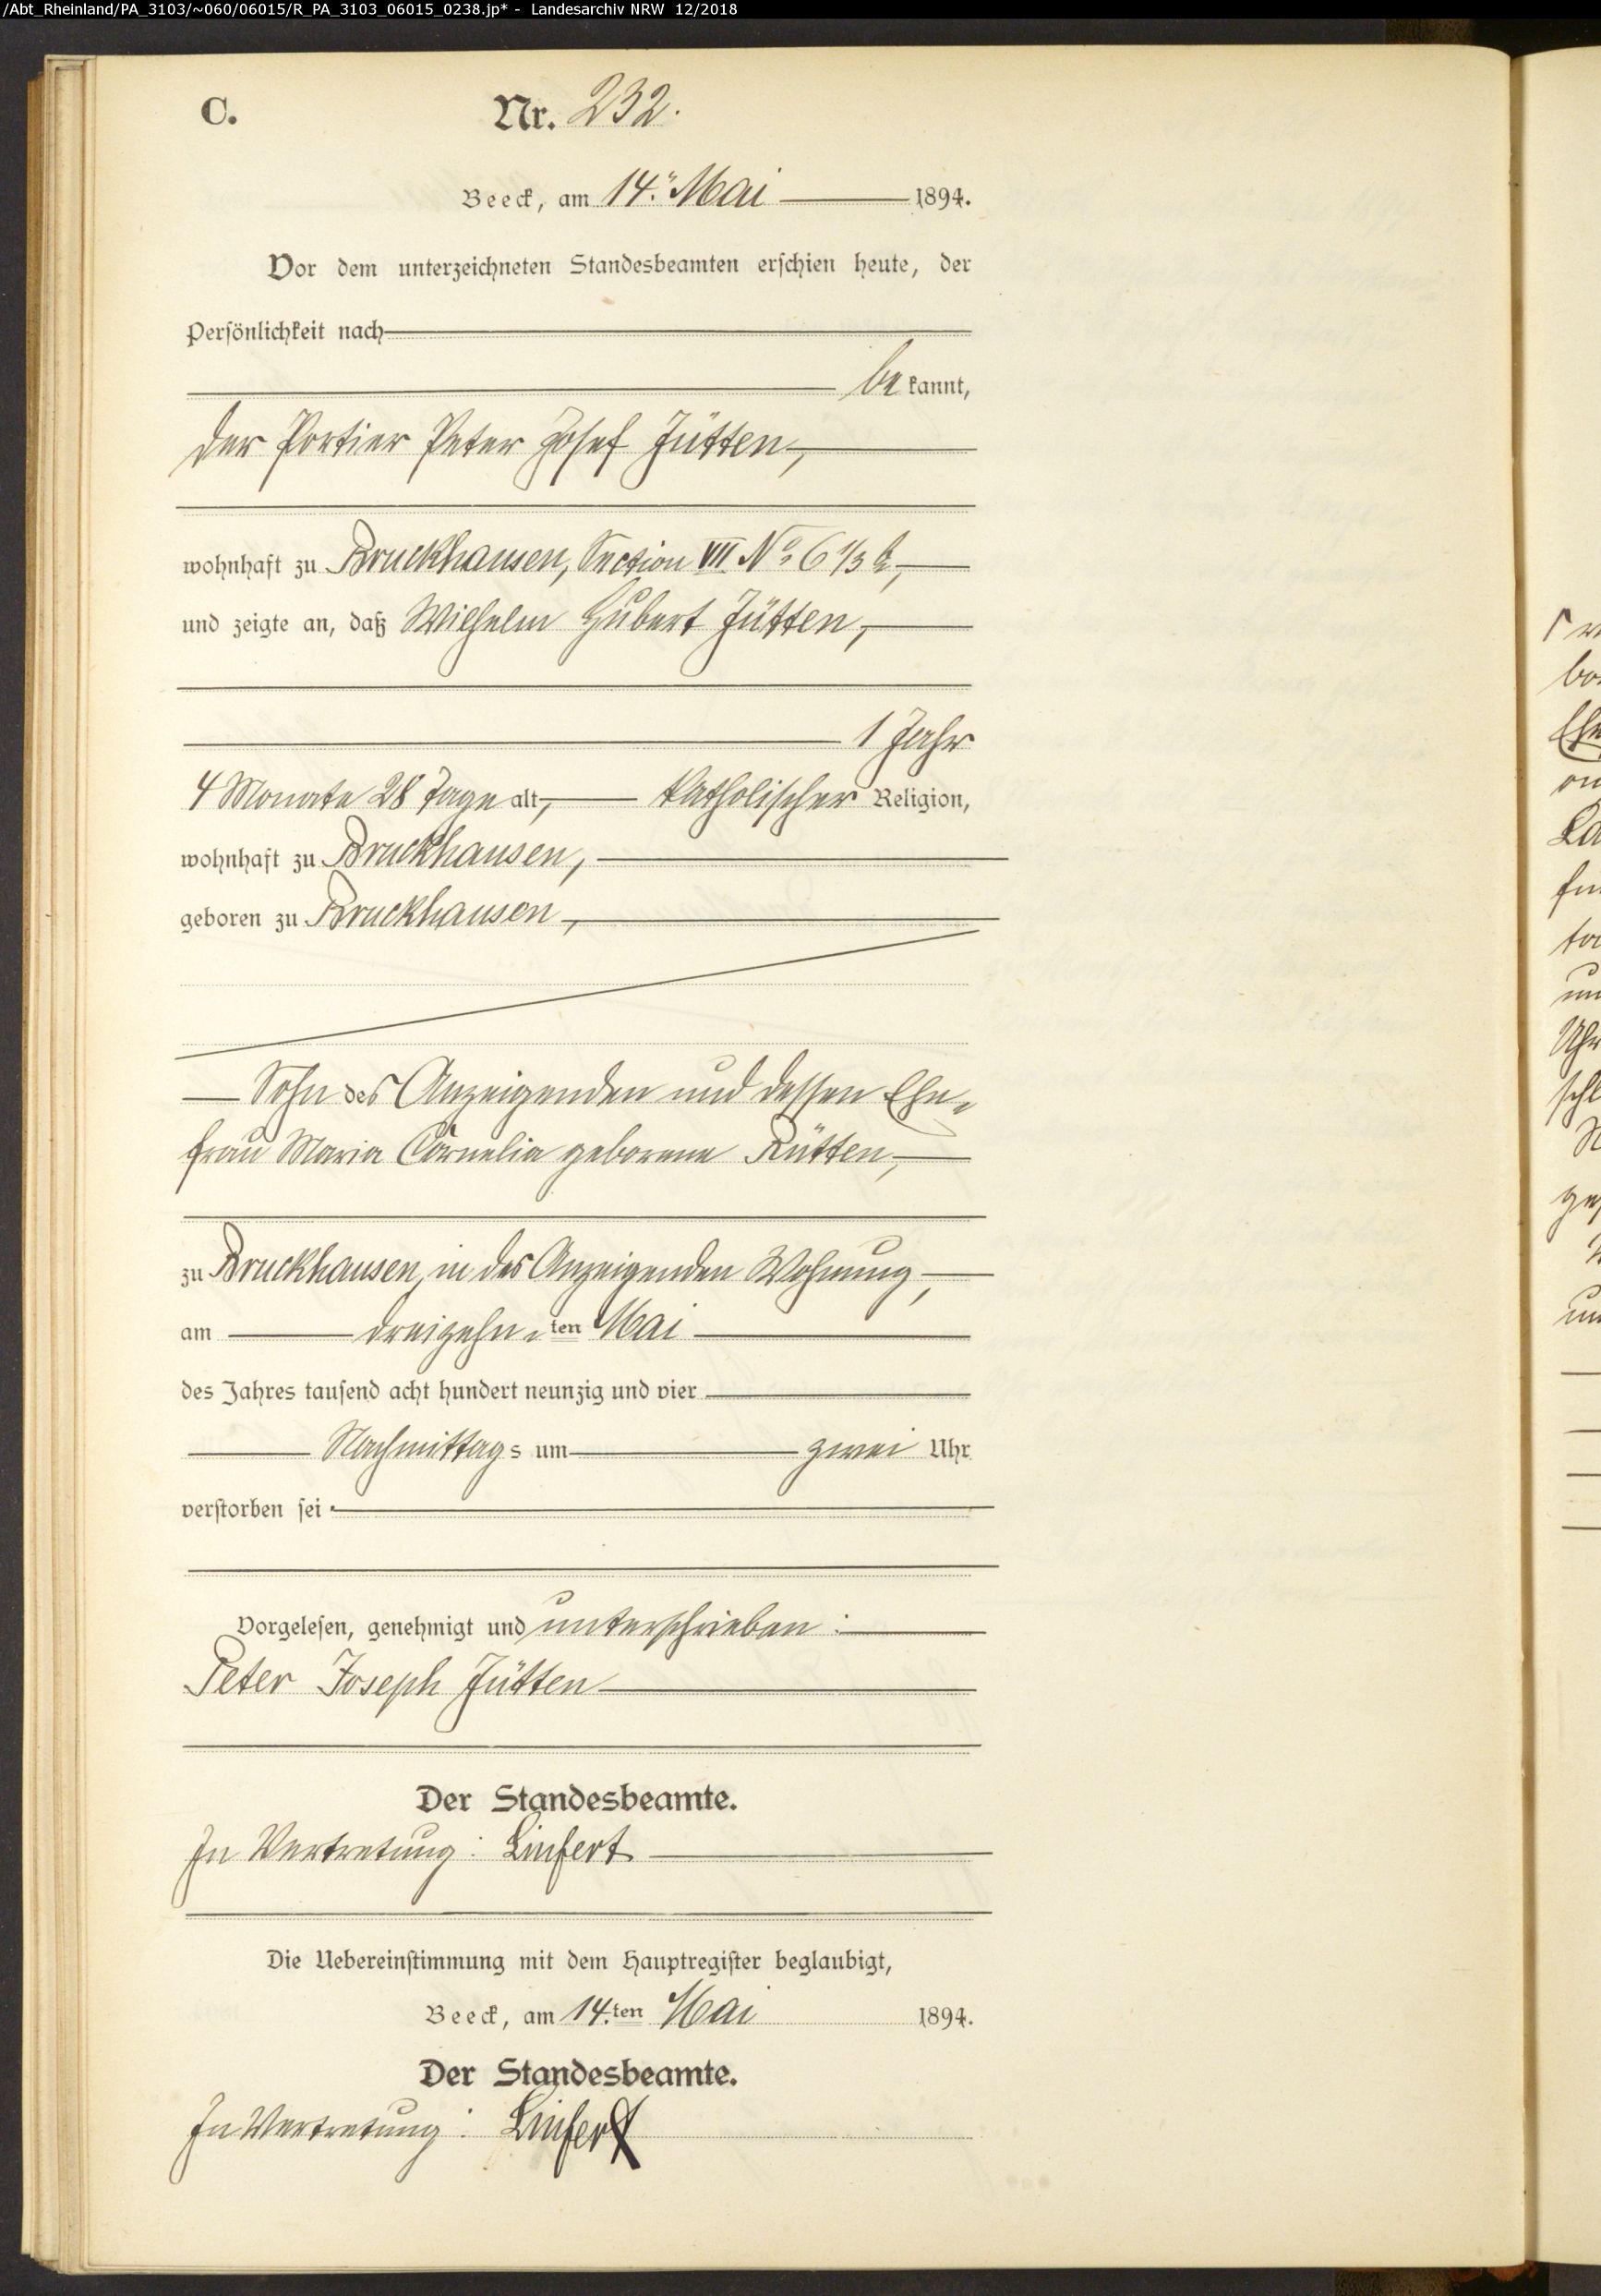 /Abt_Rheinland/PA_3103/~060/06015/R_PA_3103_06015_0238.jp* - Landesarchiv NRW 12/2018
C. Nr. 232.
Beeck, am 14. Mai 1894.
Vor dem unterzeichneten Standesbeamten erschien heute, der
Persönlichkeit nach
be kannt,
der Portier Peter Josef Jütten,
wohnhaft zu Bruckhausen, Section VII No 6 1/3
und zeigte an, daß Wilhelm Hubert Jütten,
1 Jahr
4 Monate 28 Tage alt, katholischer Religion,
wohnhaft zu Bruckhausen,
geboren zu Bruckhausen,
Sohn des Anzeigenden und dessen Ehe-
frau Maria Cornelia geborene Rütten,
zu Bruckhausen, in des Anzeigenden Wohnung,
am dreizehn-ten Mai
des Jahres tausend acht hundert neunzig und vier
Nachmittags um zwei Uhr
verstorben sei
Vorgelesen, genehmigt und unterschrieben:
Peter Joseph Jütten
Der Standesbeamte.
In Vertretung: Linfert
Die Uebereinstimmung mit dem Hauptregister beglaubigt,
Beeck, am 14.ten Mai 1894.
Der Standesbeamte.
In Vertretung: Linfert